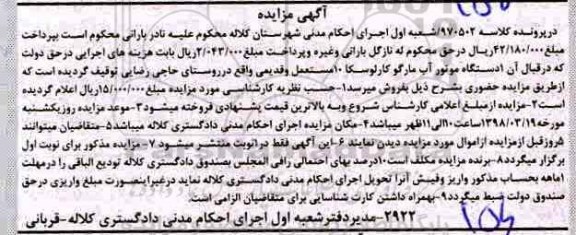 آگهی مزایده
درپرونده کلاسه ۹۷۰۵۰۲/شعبه اول اجرای احکام مدنی شهرستان کلاله محکوم علیه نادر بارانی محکوم است بپرداخت
مبلغ۴۲/۱۸۰/۰۰۰ریال درحق محکوم له نازگل بارانی وغیره وپرداخت مبلغ۲/۰۴۳/۰۰۰ریال بابت هزینه های اجرایی درحق دولت
که درقبال آن ۱دستگاه موتور آب مارگو کارلوسکا ۱۰مستعمل وقدیمی واقع درروستای حاجی رضایی توقیف گردیده است که
ازطریق مزایده حضوری بشرح ذیل بفروش میرسد۱-حسب نظریه کارشناسی مورد مزایده مبلغ۱۵/۰۰۰/۰۰۰ریال اعلام گردیده
است۲-ازمبلغ اعلامی کارشناس شروع وبه بالاترین قیمت پیشنهادی فروخته میشود۳-موعد مزایده روزیکشنبه
مورخه۱۳۹۸/۰۳/۱۹ساعت۱۰الی۱۱ظهر میباشد۴-مکان مزایده اجرای احکام مدنی دادگستری کلاله میباشد۵-متقاضیان میتوانند
۵روزقبل ازمزایده ازاموال مورد مزایده دیدن نمایند ۶-این آگهی فقط در۱نوبت منتشر میشود ۷-مزایده مذکور برای نوبت اول
برگزار میگردد۸-برنده مزایده مکلف است۱۰درصد بهای احتمالی رافی المجلس بصندوق دادگستری کلاله تودیع الباقی را درمهلت
۱ماهه بحساب مذکور واریز وفیش آنرا تحویل اجرای احکام مدنی دادگستری کلاله نماید درغیراینصورت مبلغ واریزی درحق
صندوق دولت ضبط میگردد۹-بهمراه داشتن کارت شناسایی برای متقاضیان الزامی است.
۲۹۲۲-مدیردفترشعبه اول اجرای احکام مدنی دادگستری کلاله-قربانی